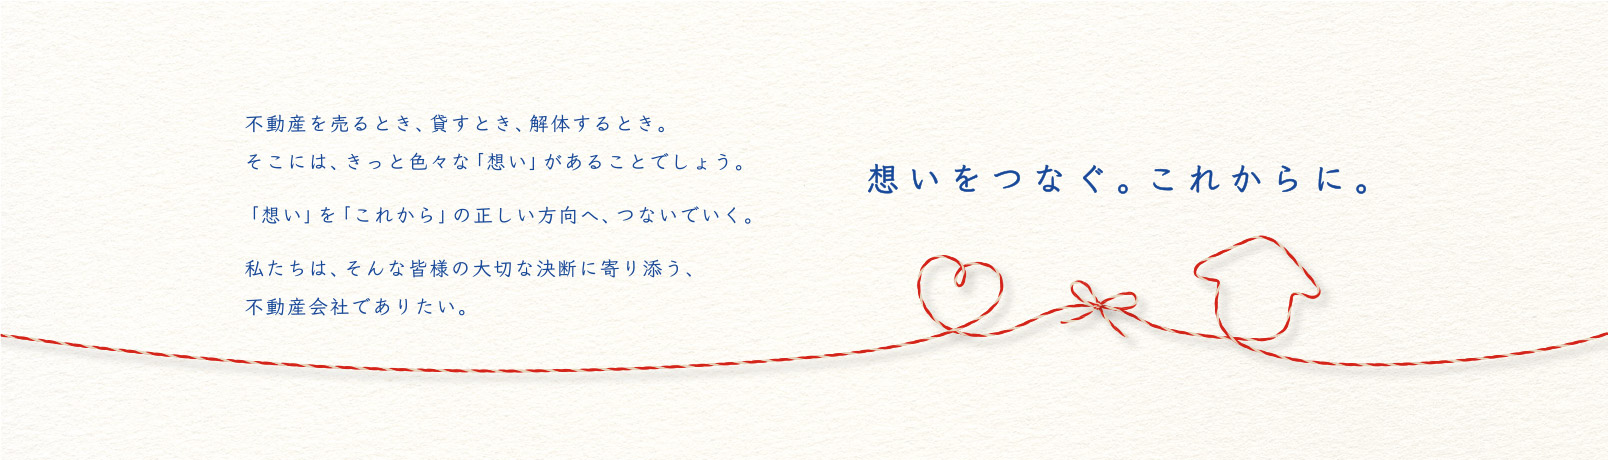 不動産を売るとき、貸すとき、解体するとき。
そこには、きっと色々な「想い」があることでしょう。
「想い」を「これから」の正しい方向へ、つないでいく。
私たちは、そんな皆様の大切な決断に寄り添う、
不動産会社でありたい。
想いをつなぐ。これからに。